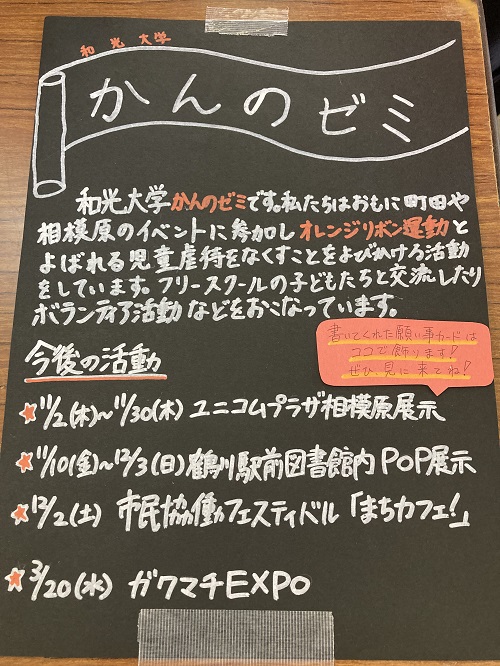 和光大学
かんのゼミ
和光大学かんのゼミです。私たちはおもに町田や
相模原のイベントに参加しオレンジリボン運動と
よばれる児童虐待をなくすことをよびかける活動
をしています。フリースクールの子どもたちと交流したり
ボランティア活動などをおこなっています。
書いてくれた願い事カードは
ココで飾ります!
ぜひ、見に来てね!
今後の活動
11/2(木)~11/30(木) ユニコムプラザ相模原展示
11/10(金)~12/3(日)鶴川駅前図書館内POP展示
12/2(土) 市民協働フェスティバル「まちカフェ!」
3/20(水) ガクマチEXPO